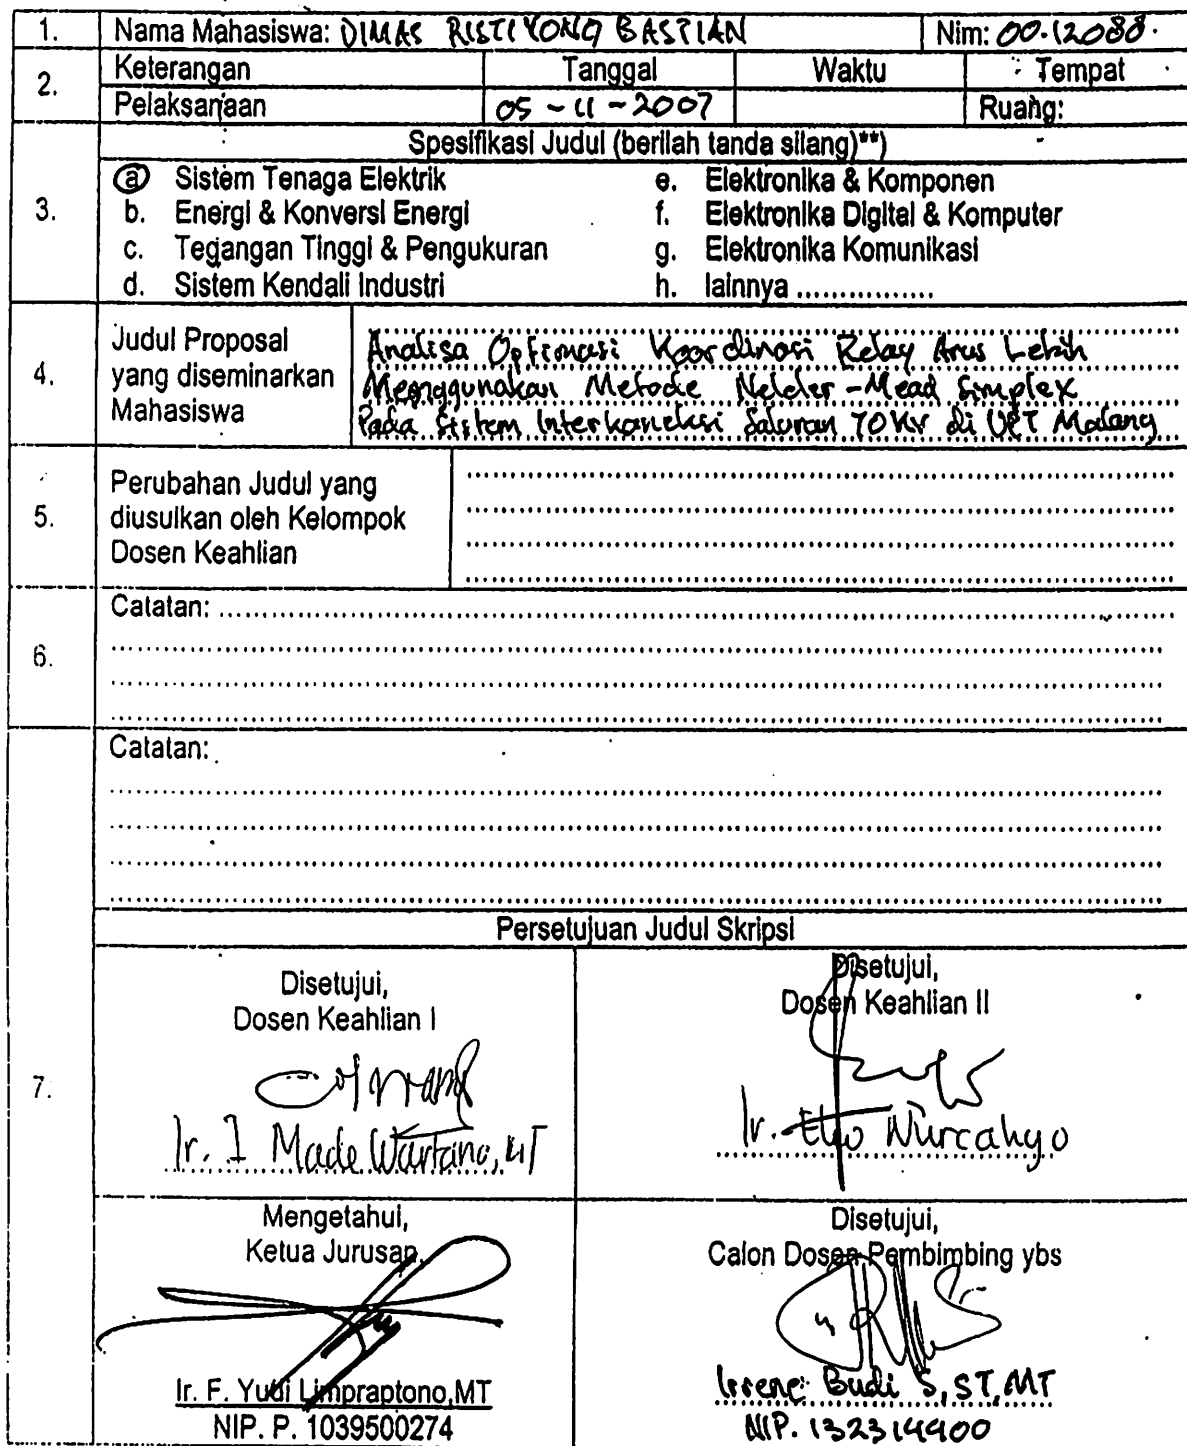 1. Nama Mahasiswa: DIMAS RISTIYONO BASTIAN Nim: 00.12088.
2. Keterangan Tanggal Waktu Tempat
Pelaksanaan 05-11-2007 Ruang:
Spesifikasi Judul (berilah tanda silang)**)
3.
a Sistem Tenaga Elektrik
b. Energi & Konversi Energi
c. Tegangan Tinggi & Pengukuran
d. Sistem Kendali Industri
e. Elektronika & Komponen
f. Elektronika Digital & Komputer
g. Elektronika Komunikasi
h. lainnya ................
4.
Judul Proposal
yang diseminarkan
Mahasiswa
Analisa Optimasi Koordinasi Relay Arus Lebih
Menggunakan Metode Nelder-Mead Simplex
Pada Sistem Interkoneksi Saluran 70 KV di UPT Malang
5.
Perubahan Judul yang
diusulkan oleh Kelompok
Dosen Keahlian
6.
Catatan:
Catatan:
Persetujuan Judul Skripsi
7.
Disetujui,
Dosen Keahlian I
Ir. I Made Wartana, MT
Disetujui,
Dosen Keahlian II
Ir. Eko Nurcahyo
Mengetahui,
Ketua Jurusan.
Ir. F. Yudi Limpraptono,MT
NIP. P. 1039500274
Disetujui,
Calon Dosen Pembimbing ybs
Irrene Budi S, ST, MT
NIP. 132314400